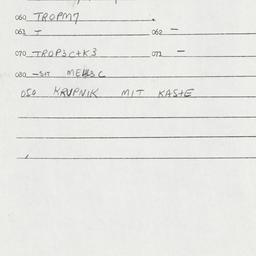 060 TROPM7
061 T 062 -
070 TROP3C+K3 071 -
080 -SIT ME3C
050 KRUPNIK MIT KASTE